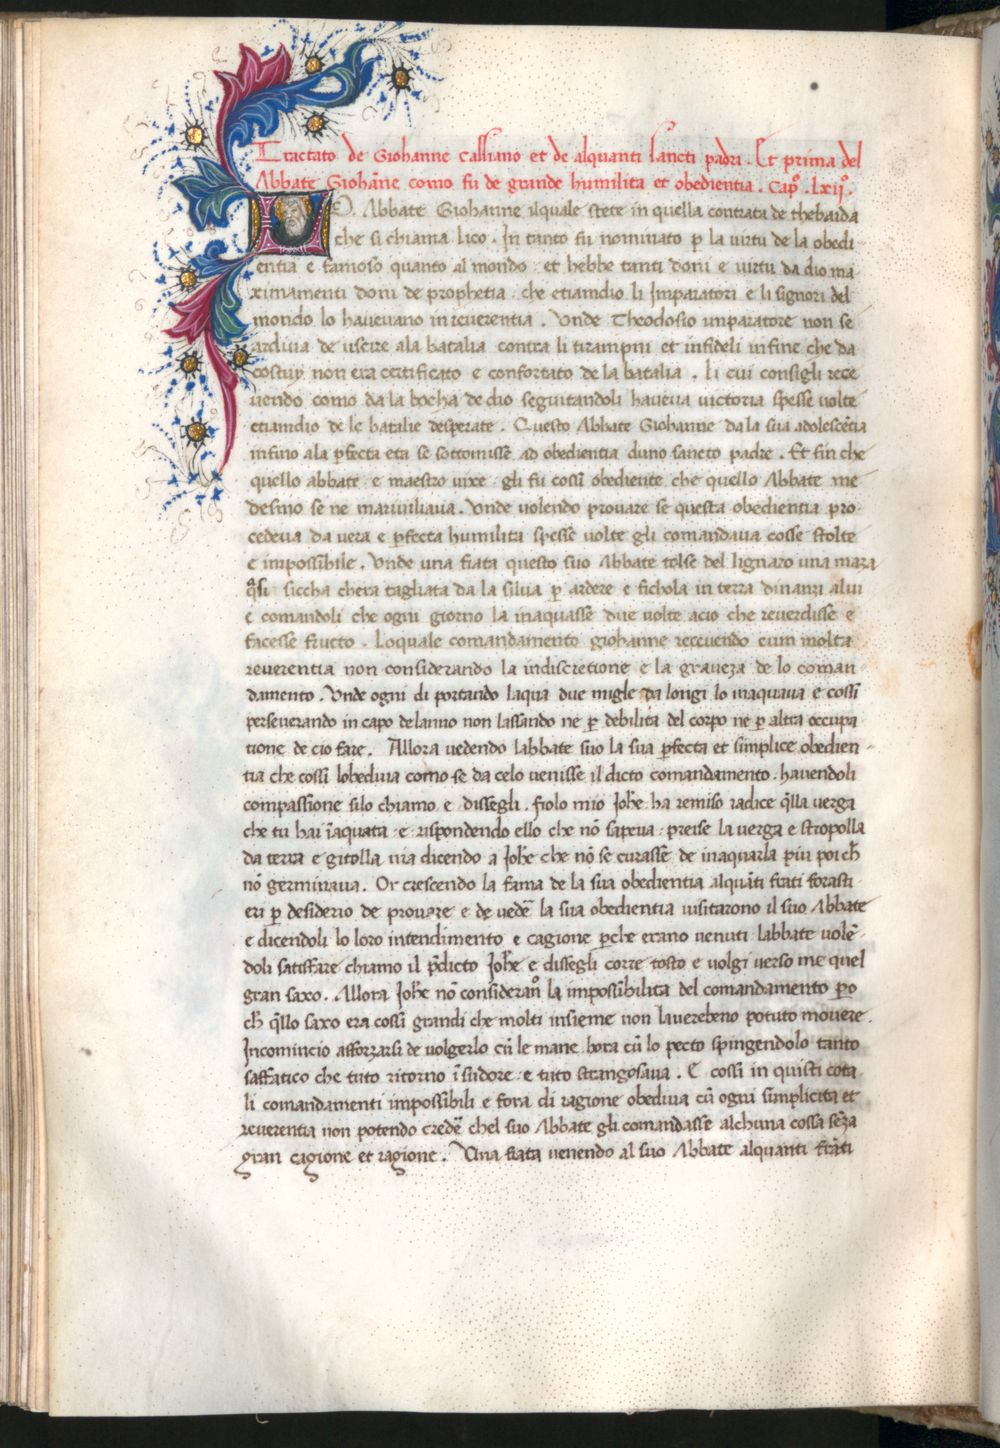 Tractato de Giohanne Cassiano et de alquanti sancti padri . Et prima del
Abbate Giohãne como fu de grande humilita et obedientia . Capº . Lxijº .
O . Abbate Giohanne ilquale stete in quella contrata de thebaida
che si chiama lico . In tanto fu nominato p la virtu de la obedi
entia e famoso quanto al mondo . et hebbe tanti doni e virtu da dio ma
ximamenti doni de prophetia . che etiamdio li Imparatori e li signori del
mondo lo havevano in reverentia . Unde Theodosio imparatore non se
ardiva de uscire ala batalia contra li tirampni et infideli infine che da
costuy non era certificato e confortato de la batalia . li cui consigli rece
uendo como da la bocha de dio seguitandoli haveva victoria spesse volte
etiamdio de le batalie desperate . Questo Abbate Giohanne da la sua adolescẽtia
infino ala pfecta eta se sottomisse ad obedientia duno sancto padre . Et fin che
quello abbate e maestro vixe . gli fu cossi obediente che quello Abbate me
desmo se ne maraviliava . Unde volendo provare se questa obedientia pro
cedeva da vera e pfecta humilita spesse volte gli comandava cosse stolte
e impossibile . Unde una fiata questo suo Abbate tolse del lignaro una maza
q̃si siccha chera tagliata da la silva p ardere e fichola in terra dinanzi alui
e comandoli che ogni giorno la inaquasse due volte acio che reverdisse e
facesse fructo . Loquale comandamento giohanne recevendo cum molta
reverentia non considerando la indiscretione e la graveza de lo coman
damento . Unde ogni di portando laqua due migle da longi lo inaquava e cossi
perseverando in capo de lanno non lassando ne p debilita del corpo ne p altra occupa
tione de cio fare . Allora vedendo labbate suo la sua pfecta et simplice obedien
tia che cossi lobediva como se da celo venisse il dicto comandamento . havendoli
compassione silo chiamo e dissegli . fiolo mio Johẽ ha remiso radice q̃lla verga
che tu hai ĩaquata . e rispondendo ello che nõ sapeva . preise la verga e stropolla
da terra e gitolla via dicendo a Johẽ che nõ se curasse de inaquarla piu poi ch̃
nõ germinava . Or crescendo la fama de la sua obedientia alquãti frati forasti
eri p desiderio de provare e de vedẽ la sua obedientia visitarono il suo Abbate
e dicendoli lo loro intendimento e cagione pche erano venuti . labbate volẽ
doli satisfare chiamo il p̃dicto Johẽ e dissegli corre tosto e volgi verso me quel
gran saxo . Allora Johẽ nõ consideranº la impossibilita del comandamento po
ch̃ q̃llo saxo era cossi grandi che molti insieme non laverebeno potuto movere .
Incomincio afforzarsi de volgerlo cũ le mane . hora cũ lo pecto spingendolo tanto
saffatico che tuto ritorno ĩ sudore . e tuto strangosava . E cossi in quisti cota
li comandamenti impossibili e fora di ragione obediva cũ ogni simplicita et
reverentia non potendo credẽ chel suo Abbate gli comandasse alchuna cossa sẽza
gran cagione et ragione . Una fiata venendo al suo Abbate alquanti frãti